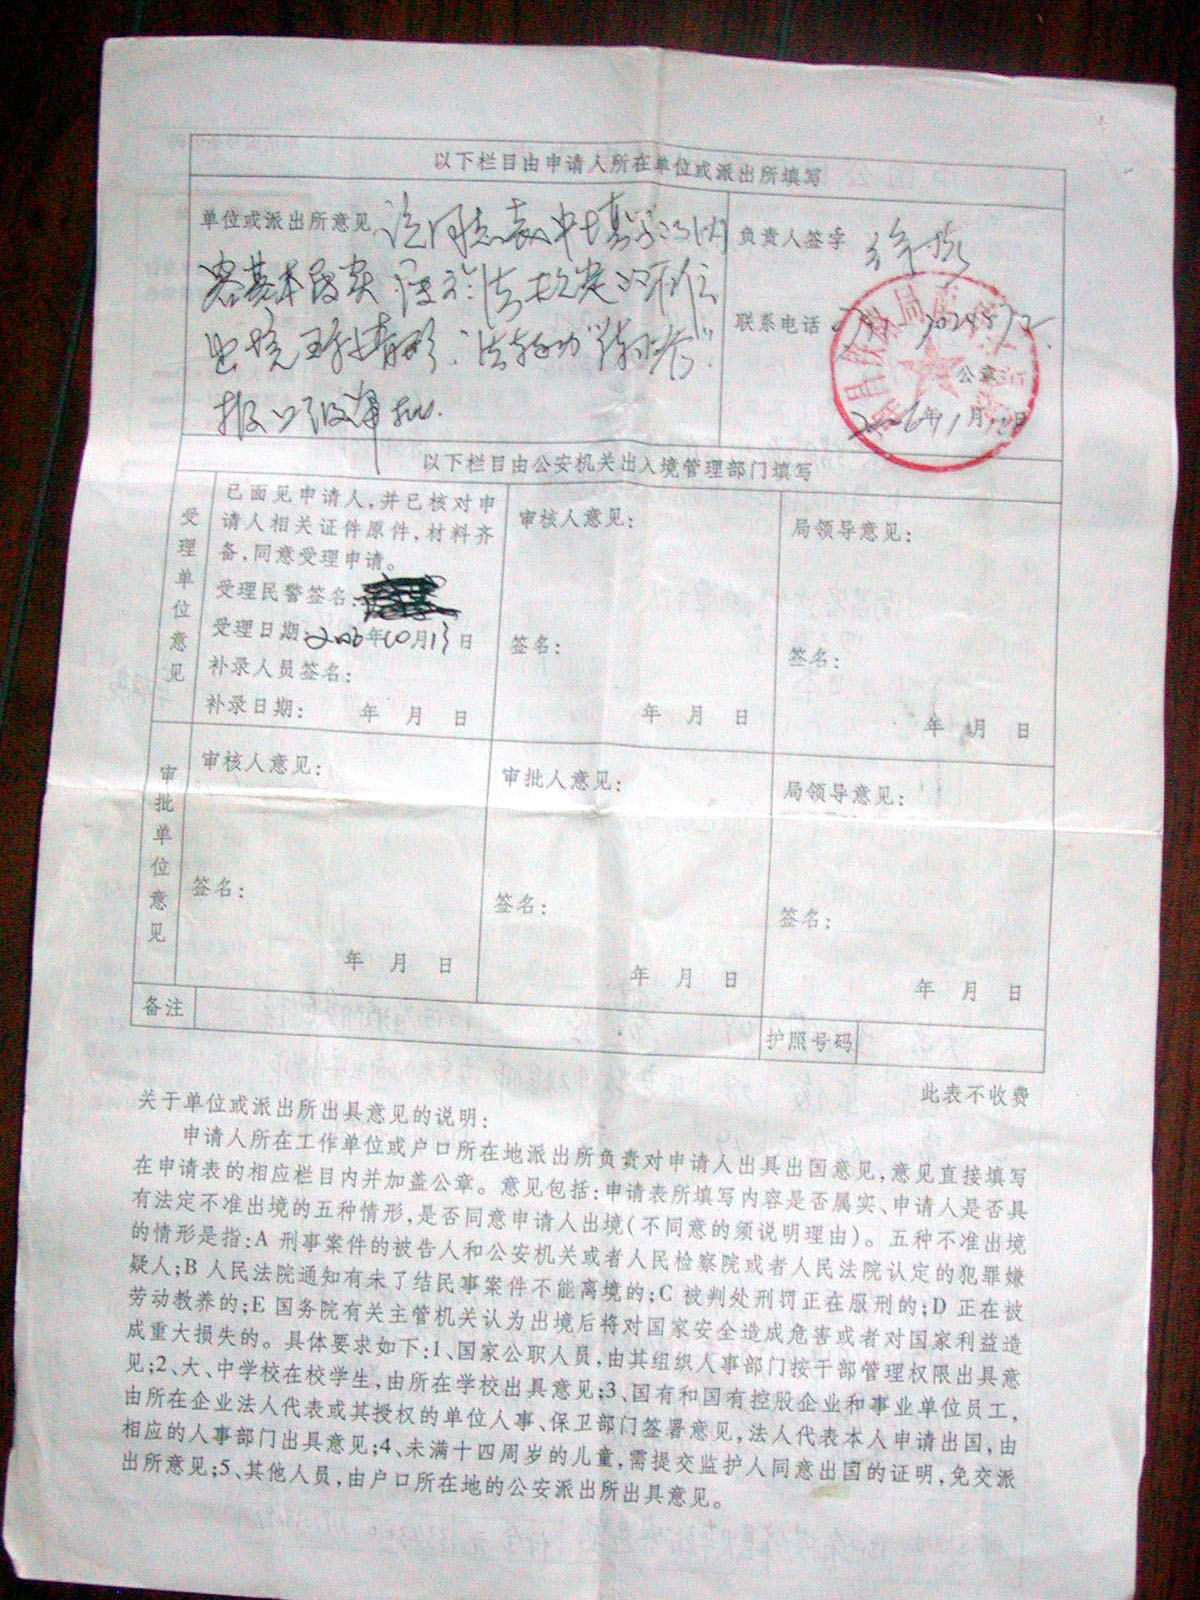 以下栏目由申请人所在单位或派出所填写
单位或派出所意见 该同志表中填写的内
容基本属实
报上级审批.
负责人签字 徐
联系电话
公章
2006年1月12日
以下栏目由公安机关出入境管理部门填写
受理单位意见
已面见申请人,并已核对申
请人相关证件原件,材料齐
备,同意受理申请。
受理民警签名:
受理日期:2006年10月13日
补录人员签名:
补录日期: 年 月 日
审核人意见:
签名:
年 月 日
局领导意见:
签名:
年 月 日
审批单位意见
审核人意见:
签名:
年 月 日
审批人意见:
签名:
年 月 日
局领导意见:
签名:
年 月 日
备注
护照号码
此表不收费
关于单位或派出所出具意见的说明:
申请人所在工作单位或户口所在地派出所负责对申请人出具出国意见,意见直接填写
在申请表的相应栏目内并加盖公章。意见包括:申请表所填写内容是否属实、申请人是否具
有法定不准出境的五种情形,是否同意申请人出境(不同意的须说明理由)。五种不准出境
的情形是指:A 刑事案件的被告人和公安机关或者人民检察院或者人民法院认定的犯罪嫌
疑人;B 人民法院通知有未了结民事案件不能离境的;C 被判处刑罚正在服刑的;D 正在被
劳动教养的;E 国务院有关主管机关认为出境后将对国家安全造成危害或者对国家利益造
成重大损失的。具体要求如下:1、国家公职人员,由其组织人事部门按干部管理权限出具意
见;2、大、中学校在校学生,由所在学校出具意见;3、国有和国有控股企业和事业单位员工,
由所在企业法人代表或其授权的单位人事、保卫部门签署意见,法人代表本人申请出国,由
相应的人事部门出具意见;4、未满十四周岁的儿童,需提交监护人同意出国的证明,免交派
出所意见;5、其他人员,由户口所在地的公安派出所出具意见。